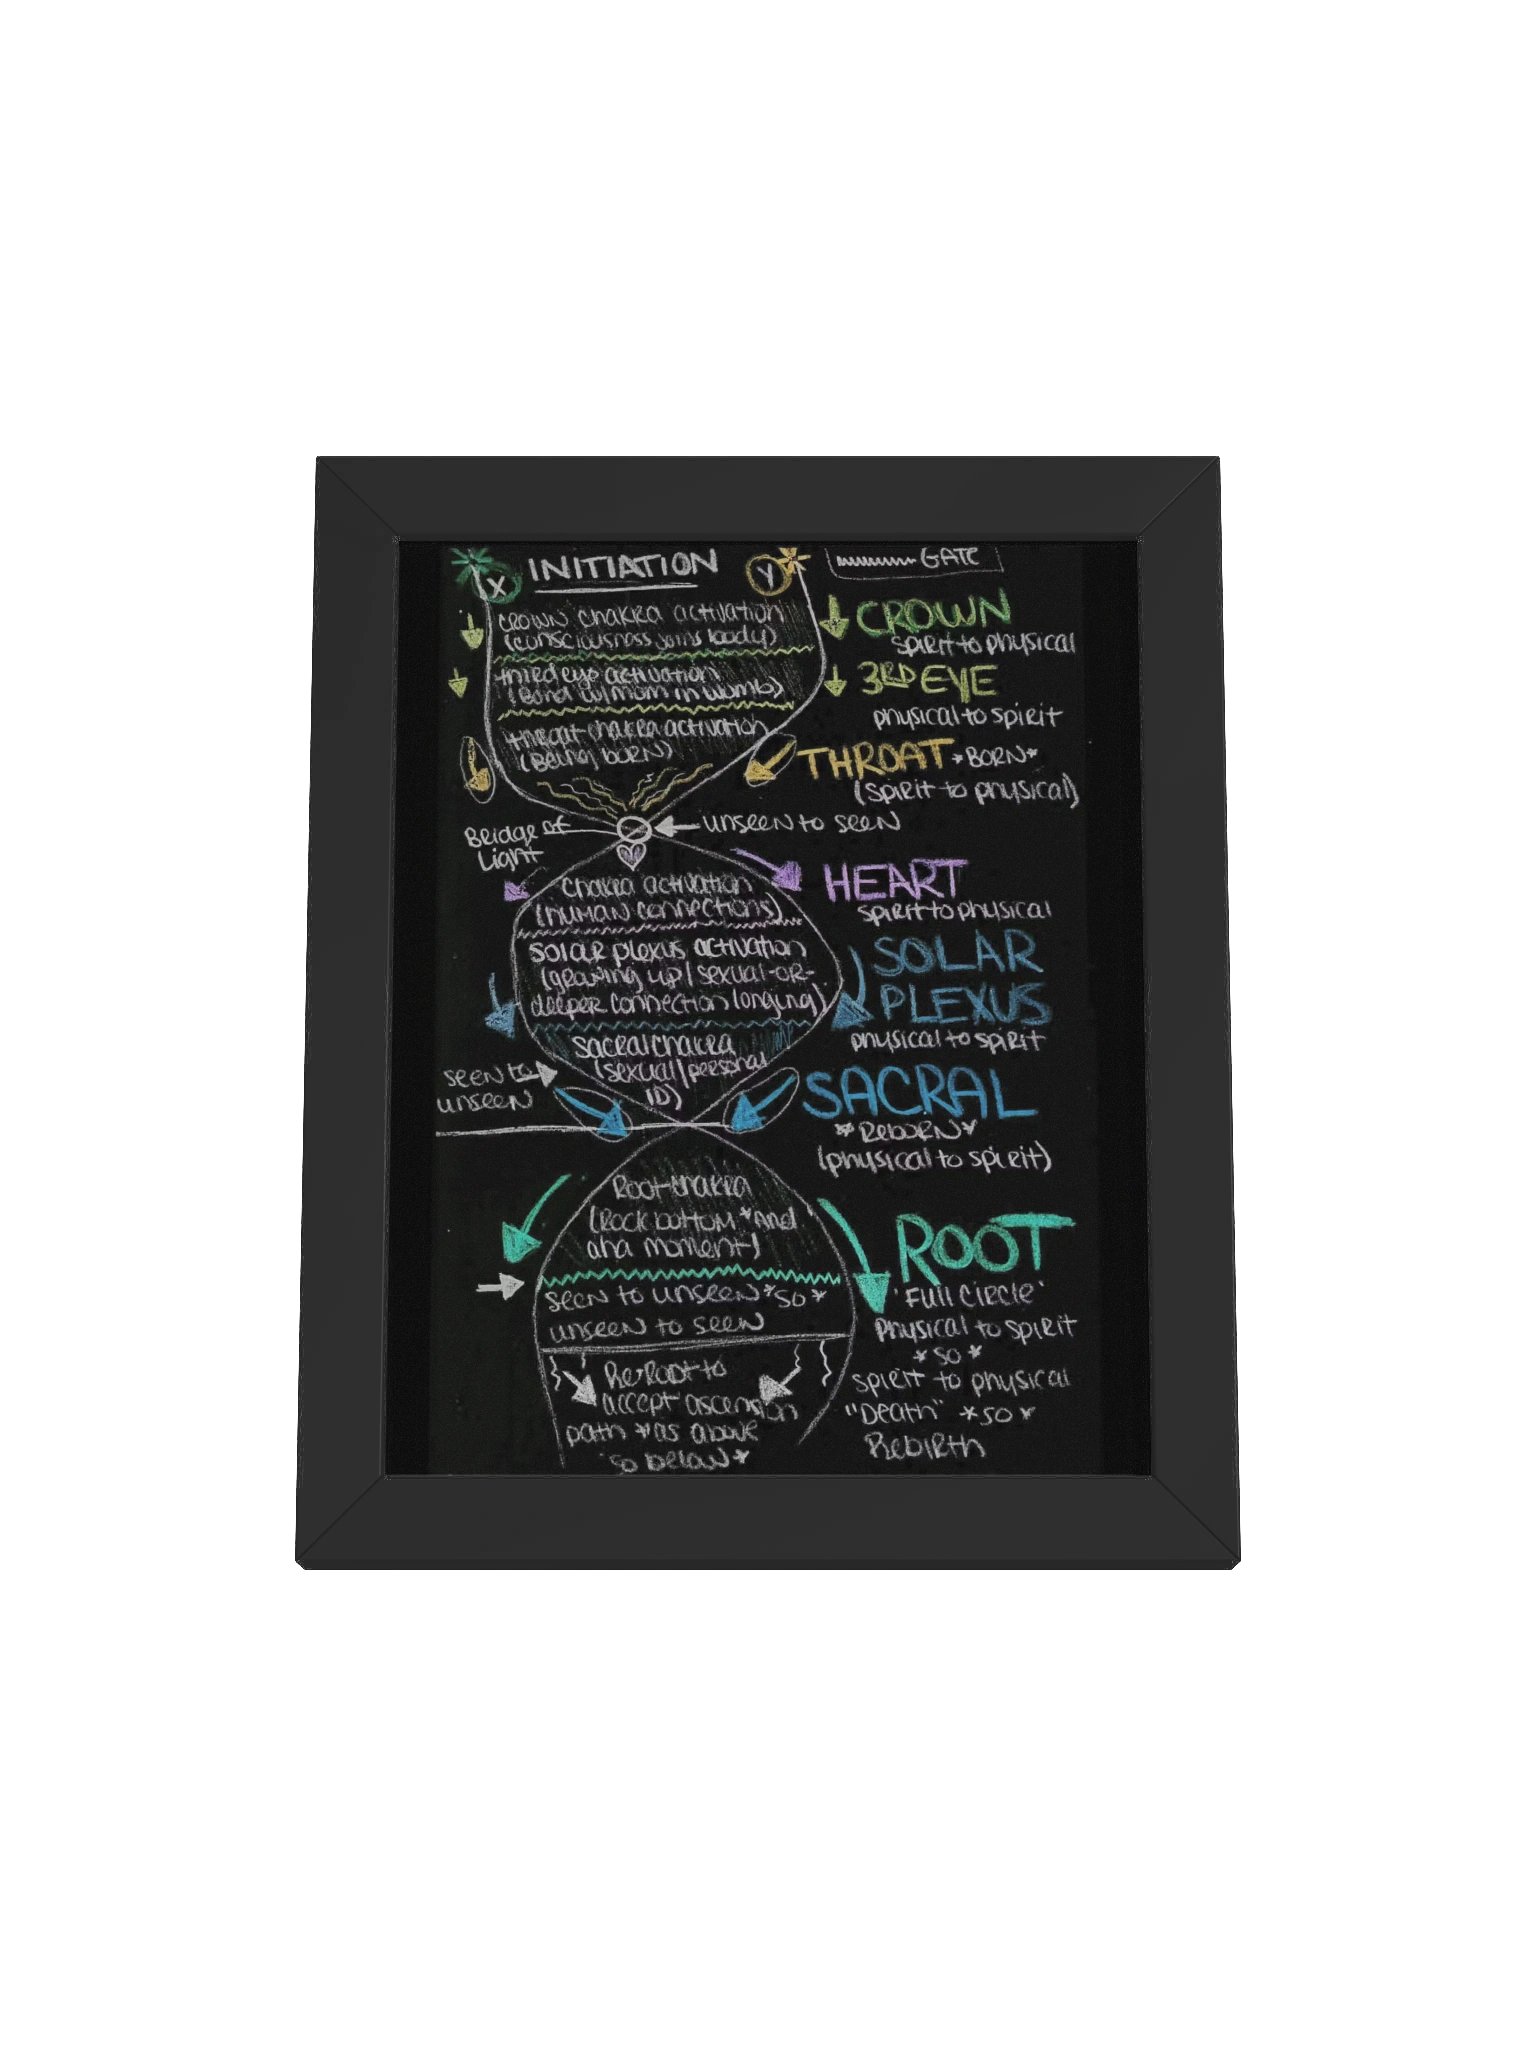 X INITIATION Y
GATE
CROWN chakra activation
(consciousness joins body)
third eye activation
(Bond w/mom in womb)
throat chakra activation
(Being born)
CROWN
spirit to physical
3RD EYE
physical to spirit
THROAT *BORN*
(spirit to physical)
Bridge of
Light
unseen to seen
chakra activation
(human connections)
solar plexus activation
(growing up/sexual-or-
deeper connection longing)
sacral chakra
(sexual/personal
ID)
HEART
spirit to physical
SOLAR
PLEXUS
physical to spirit
seen to
unseen
SACRAL
*Reborn*
(physical to spirit)
Root chakra
(Rock bottom *And
aha moment)
seen to unseen *so*
unseen to seen
Re-Root to
accept ascension
path *as above
so below*
ROOT
'Full circle'
physical to spirit
*so*
spirit to physical
"Death" *so*
Rebirth